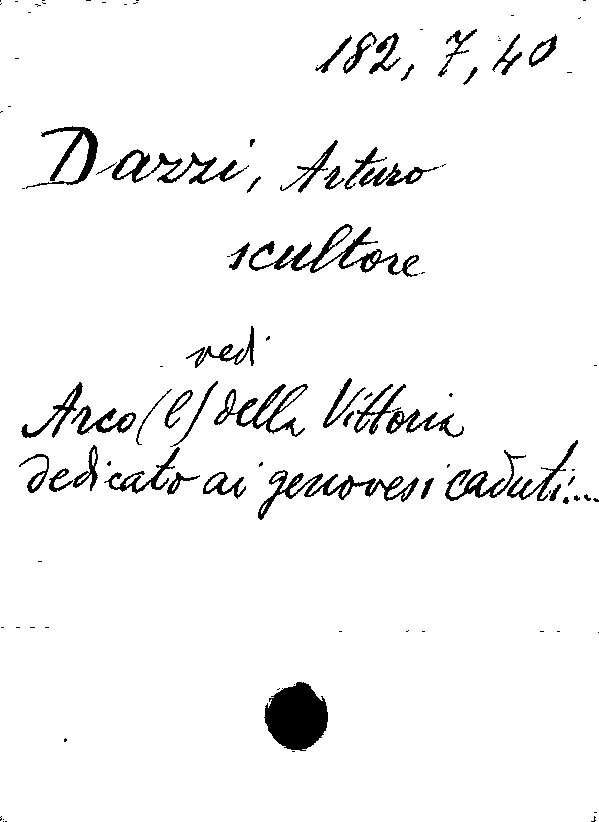 182, 7, 40
Dazzi, Arturo
scultore
vedi
Arco (l') della Vittoria
dedicato ai genovesi caduti....